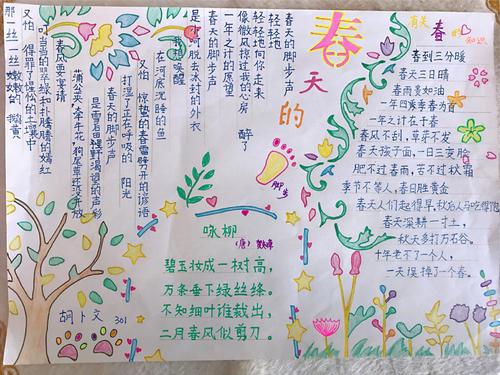 春天的
脚步
春天的脚步声
轻轻地
轻轻地向你走来
像微风掠过我的心房
一年之计的原望
醉了
春天的脚步声
是小河脱去冰封的外衣
我想唤醒
在河底沉睡的鱼
又怕 惊蛰的春雷劈开的谚语
打湿了正在呼吸的 阳光
春天的脚步声
春风要宴请
蒲公英,牵牛花,狗尾草还没开放
又怕 得罪了惺忪的土壤中
那一丝一丝 嫩嫩的 鹅黄
有关 春 的
知识
春到三分暖
春天三日晴
春雨贵如油
一年四季春为首
一年之计在于春
春风不刮,草芽不发
春天孩子面,一日三变脸
肥不过春雨,苦不过秋霜
季节不等人,春日胜黄金
春天人们起得早,秋后人马吃得饱
春天深耕一寸土,
秋天多打万石谷。
十年老不了一个人,
一天误掉了一个春。
咏柳
(唐) 贺知章
碧玉妆成一树高,
万条垂下绿丝绦。
不知细叶谁裁出,
二月春风似剪刀。
胡卜文 301